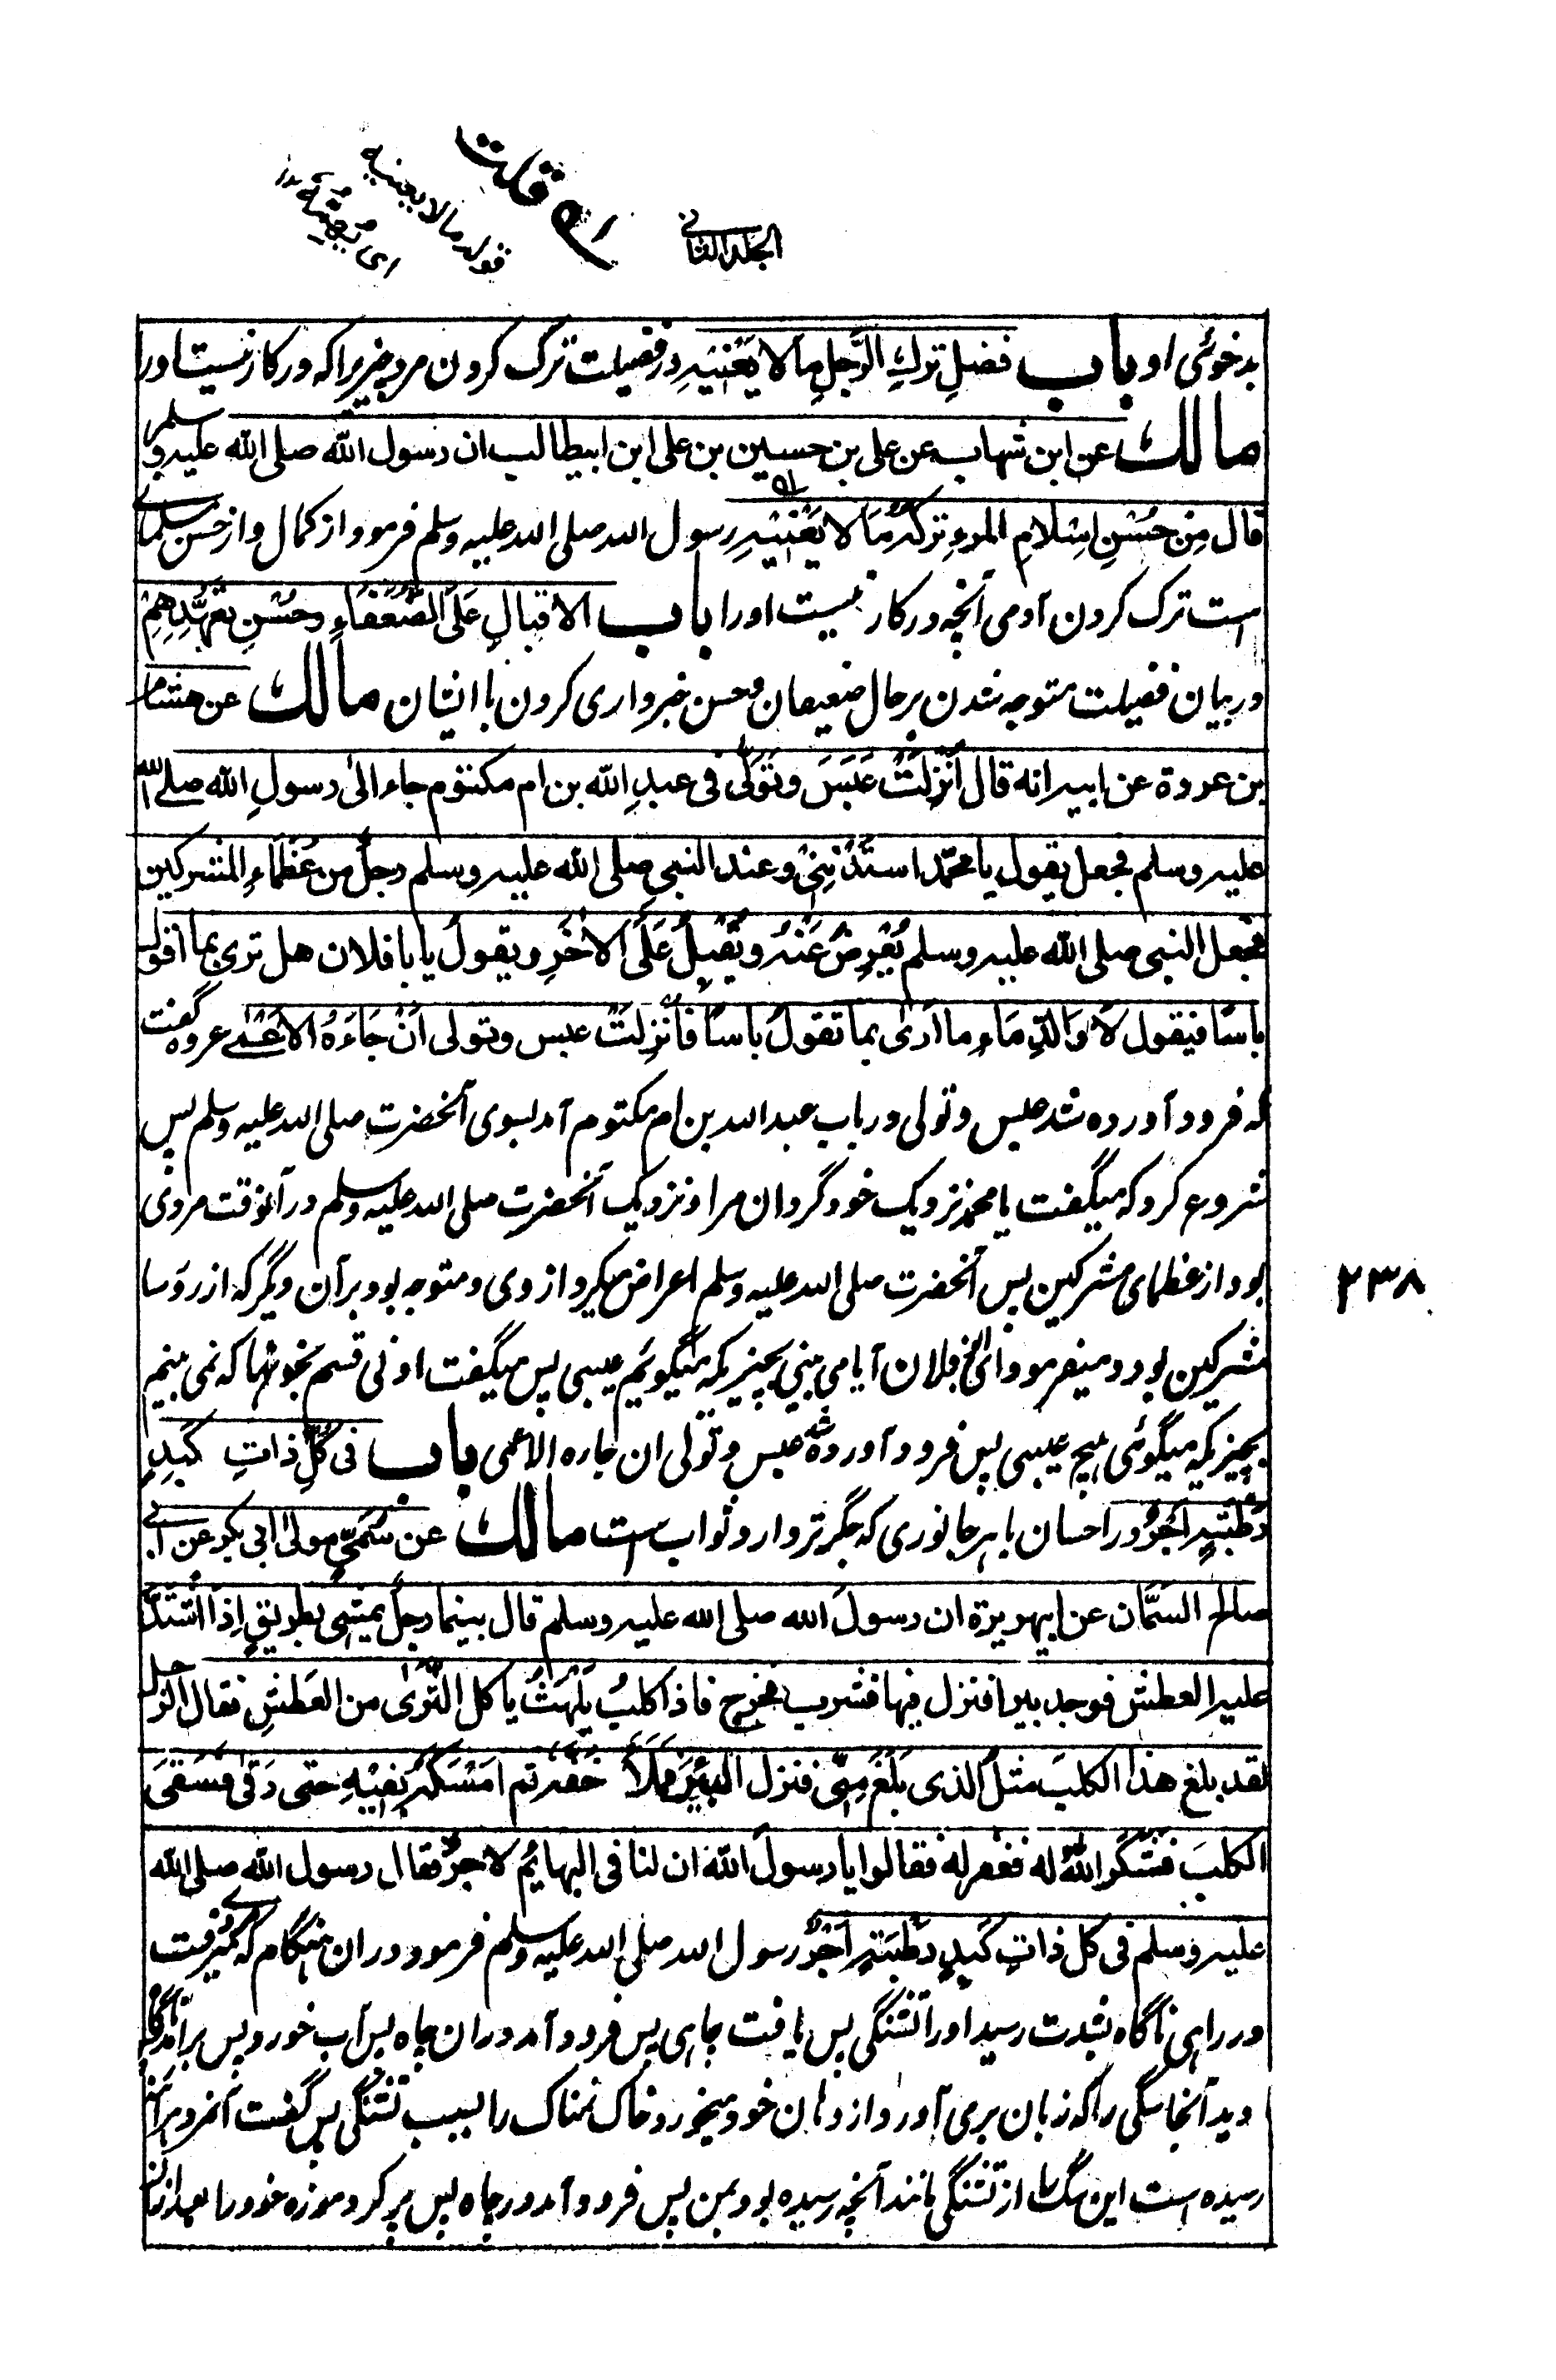 الجلد الثانی
سه قلت
قوله مالا یعنیه
ای
بدخوئی او باب فضلِ تركِ الرَّجلِ مالا یَعْنِیْهِ در فضیلت ترک کردن مرد چیزیرا که درکار نیست اورا
مالك عن ابن شهاب عن علی بن حسین بن علی ابن ابیطالب ان رسول الله صلی الله علیه وسلم
قال مِن حُسْنِ اِسْلامِ المرءِ ترکُهُ مَا لا یَعْنِیْهِ رسول الله صلی الله علیه وسلم فرمود از کمال و از حُسن مسلمانے
است ترک کردن آدمی آنچه درکار نیست اورا باب الاقبالِ عَلَی الضُّعَفَاءِ وحُسْنِ تعهُّدِهِمْ
دربیان فضیلت متوجه شدن برحال ضعیفان و حسن خبرداری کردن با ایشان مالك عن هشام
بن عروة عن ابیه انه قال اُنْزِلَتْ عَبَسَ وتَوَلّٰی فی عبدِ الله بن ام مکتوم جاء الیٰ رسولِ الله صلے الله
علیه وسلم فجعل یقول یا محمّد استَدْنِنِیْ وعند النبی صلی الله علیه وسلم رجلٌ من عُظَمَاءِ المشرکین
فجعل النبی صلی الله علیه وسلم یُعْرِضُ عَنْهُ ویُقْبِلُ عَلَی الاٰخَرِ ویقولُ یا با فلان هل تریٰ بما اقول
باسًا فیقول لَا وَالدِّمَاءِ ما اَریٰ بما تقولُ باسًا فاُنْزِلَتْ عبس وتولی اَنْ جَاءَهُ الاَعْمٰے عروه گفت
که فرود آورده شد عبس وتولی درباب عبدالله بن ام مکتوم آمد بسوی آنحضرت صلی الله علیه وسلم پس
شروع کرد که میگفت یا محمد نزدیک خود گردان مرا ونزدیک آنحضرت صلی الله علیه وسلم درآنوقت مردی
بود از عظمای مشرکین پس آنحضرت صلی الله علیه وسلم اعراض میکرد از وی ومتوجه بود برآن دیگر که از روسا
مشرکین بود ومیفرمود ای فلان آیا می بینی بچیزیکه میگویم عیبی پس میگفت او نی قسم بخونها که نمی بینم
بچیزیکه میگوئی هیچ عیبی پس فرود آورده شد عبس وتولی ان جاره الاعمی باب فی کُلِّ ذاتِ کَبِدٍ
رَطْبَةٍ اَجْرٌ دراحسان باهر جانوری که جگر تر دارد ثواب ست مالك عن سُمَیٍّ مولیٰ ابی بکر عن ابی
صالح السَّمَّان عن ابیهریرة ان رسولَ الله صلی الله علیه وسلم قال بینما رجلٌ یمشی بطریقٍ اِذَا اشْتَدَّ
علیه العطش فوجد بیرا فنزل فیها فشرب فخرج فاذا کلبٌ یَلْهَثُ یاکل الثَّرٰی من العَطَشِ فقال الرجل
لقد بلغ هذا الکلبَ مثلُ الذی بَلَغَ مِنِّی فنزل البئرَ فمَلَأَ خُفَّهُ ثم اَمْسَکَهُ بِفِیْهِ حتی رَقیٰ فَسَقیَ
الکلبَ فشَکَرَ اللهُ له فغفر له فقالوا یا رسولَ الله ان لنا فی البهایُم لاجرٌ فقال رسول الله صلی الله
علیه وسلم فی کل ذاتِ کَبِدٍ رطْبَةٍ اَجْرٌ رسول الله صلی الله علیه وسلم فرمود دران هنگام که مردے میرفت
در راهی ناگاه بشدت رسید اورا تشنگی پس یافت چاهی پس فرود آمد دران چاه پس آب خورد پس برآمد ناگاه
دید آنجا سگی را که زبان برمی آورد از دهان خود میخورد خاک نمناک را بسبب تشنگی پس گفت آنمرد هرآینه
رسیده است این سگ را از تشنگی مانند آنچه رسیده بود بمن پس فرود آمد در چاه پس پر کرد موزه خود را بعد ازان
۲۳۸